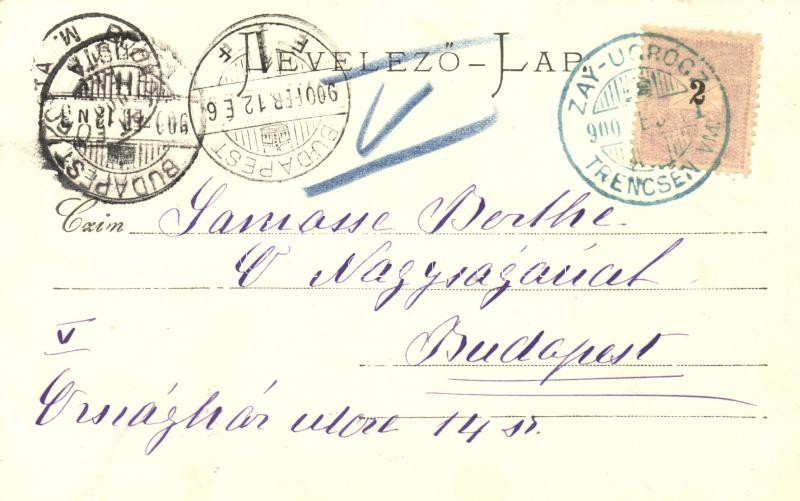 LEVELEZŐ-LAP
ZAY-UGRÓCZ
900
TRENCSÉN VM
2
BUDAPEST
900 FEB. 12 E 6
BUDAPEST
900
Czim Samassa Berthe
Ő Nagyságának
Budapest
V
Országház utcza 14 sz.